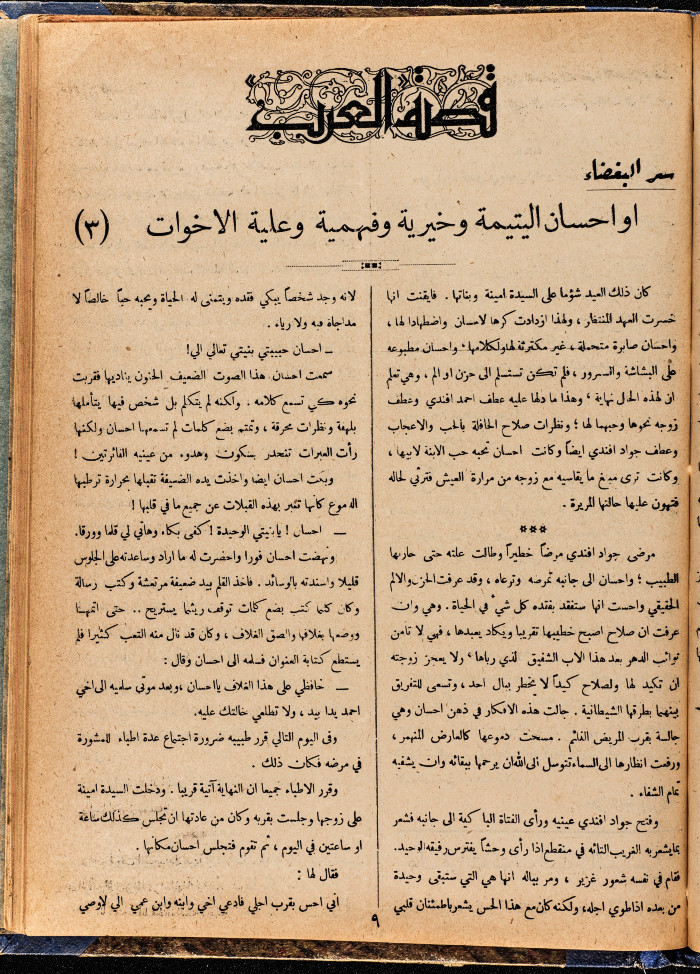 قصة العرب
سر البغضاء
او احسان اليتيمة وخيرية وفهمية وعلية الاخوات (٣)
كان ذلك العيد شؤما على السيدة امينة وبناتها . فايقنت انها
خسرت العهد المنتظار ، ولهذا ازدادت كرها لاحسان واضطهادا لها ،
واحسان صابرة متحملة ، غير مكترثة لها ولكلامها ، واحسان مطبوعه
على البشاشة والسرور ، فلم تكن تستسلم الى حزن او الم ، وهي تعلم
ان لهذه الحال نهاية ، وهذا ما دلها عليه عطف احمد افندي وعطف
زوجه نحوها وحبهما لها ؛ ونظرات صلاح الحافلة بالحب والاعجاب
وعطف جواد افندي ايضاً وكانت احسان تحبه حب الابنة لابيها ،
وكانت ترى مبلغ ما يقاسيه مع زوجه من مرارة العيش فترثي لحاله
فتهون عليها حالتها المريرة .
***
مرض جواد افندي مرضاً خطيراً وطالت علته حتى حار بها
الطبيب ؛ واحسان الى جانبه تمرضه وترعاه ، وقد عرفت الحزن والالم
الحقيقي واحست انها ستفقد بفقده كل شيء في الحياة . وهي وان
عرفت ان صلاح اصبح خطيبها تقريبا ويكاد يعبدها ، فهي لا تأمن
نوائب الدهر بعد هذا الاب الشفيق الذي رباها ، ولا يعجز زوجته
ان تكيد لها ولصلاح كيداً لا يخطر ببال احد ، وتسعى للتفريق
بينهما بطرقها الشيطانية . جالت هذه الافكار في ذهن احسان وهي
جالسة بقرب المريض النائم . مسحت دموعها كالعارض المنهمر ،
ورفعت انظارها الى السماء تتوسل الى الله ان يرحمها ببقائه وان يشفيه
تمام الشفاء .
وفتح جواد افندي عينيه ورأى الفتاة الباكية الى جانبه فشعر
بما يشعر به الغريب التائه في منقطع اذا رأى وحشاً يفترس رفيقه الوحيد.
فقام في نفسه شعور غزير ، ومر بباله انها هي التي ستبقى وحيدة
من بعده اذا طوي اجله ، ولكنه كان مع هذا الحس يشعر باطمئنان قلبي
لانه وجد شخصاً يبكي فقده ويتمنى له الحياة ويحبه حباً خالصاً لا
مداجاة فيه ولا رياء .
ــ احسان حبيبتي بنيتي تعالي الي!
سمعت احسان هذا الصوت الضعيف الحنون يناديها فقربت
نحوه كي تسمع كلامه . ولكنه لم يتكلم بل شخص فيها يتأملها
بلهفة ونظرات محرقة ، وتمتم بضع كلمات لم تسمعها احسان ولكنها
رأت العبرات تنحدر بسكون وهدوء من عينيه الغائرتين !
وبكت احسان ايضا واخذت يده الضعيفة تقبلها بحرارة ترطبها
الدموع كأنها تخبر بهذه القبلات عن جميع ما في قلبها !
ــ احسان ! يا بنيتي الوحيدة ! كفى بكاء وهاتي لي قلما وورقا.
ونهضت احسان فورا واحضرت له ما اراد وساعدته على الجلوس
قليلا واسندته بالوسائد . فأخذ القلم بيد ضعيفة مرتعشة وكتب رسالة
وكان كلما كتب بضع كلمات توقف ريثما يستريح .. حتى اتمها
ووضعها بغلافها والصق الغلاف ، وكان قد نال منه التعب كثيرا فلم
يستطع كتابة العنوان فسلمه الى احسان وقال :
ــ حافظي على هذا الغلاف يا احسان ، وبعد موتي سلميه الى اخي
احمد يدا بيد ، ولا تطلعي خالتك عليه.
وفى اليوم التالي قرر طبيبه ضرورة اجتماع عدة اطباء للمشورة
في مرضه فكان ذلك .
وقرر الاطباء جميعا ان النهاية آتية قريبا . ودخلت السيدة امينة
على زوجها وجلست بقربه وكان من عادتها ان تجلس كذلك ساعة
او ساعتين في اليوم ، ثم تقوم فتجلس احسان مكانها .
فقال لها :
أني احس بقرب اجلي فادعي اخي وابنه وابن عمي الي لاوصي
٩